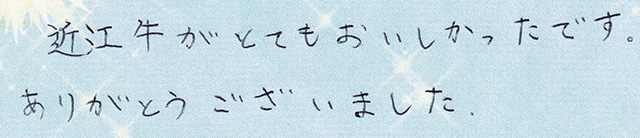 近江牛がとてもおいしかったです。
ありがとうございました.